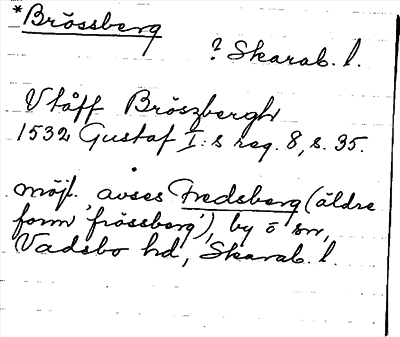 *Brössberg
? Skarab. l.
Vlåff Bröszbergh
1532 Gustaf I:s reg. 8, s. 35.
möjl. avses Fredsberg (äldre
form 'frössberg'), by o sn,
Vadsbo hd, Skarab. l.